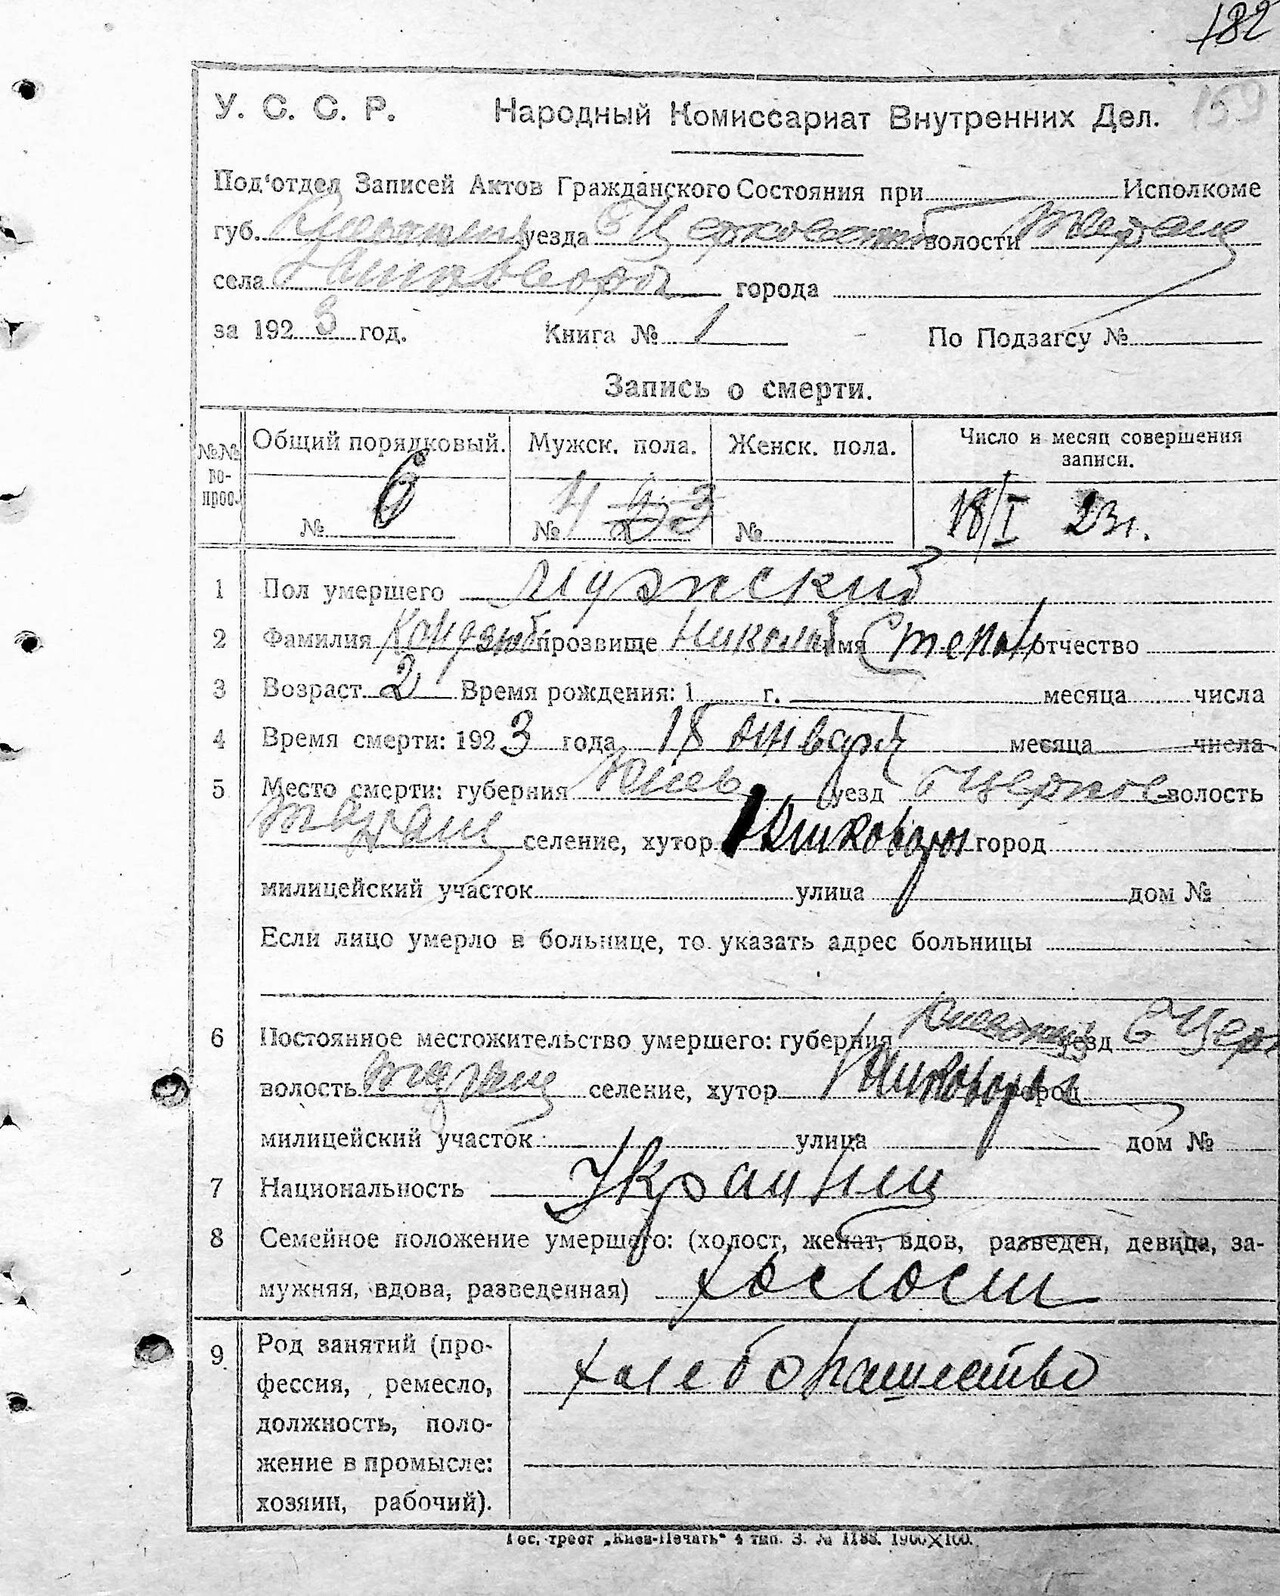 182
159
У. С. С. Р. Народный Комиссариат Внутренних Дел.
Под'отдел Записей Актов Гражданского Состояния при Исполкоме
губ. уезда БЦерковский волости
села города
за 1923 год. Книга № 1 По Подзагсу №
Запись о смерти.
№№ вопрос. Общий порядковый. Мужск. пола. Женск. пола. Число и месяц совершения записи.
№ 6 № 4 № 18/I 23г.
1 Пол умершего мужский
2 Фамилия прозвище Николай имя Степан отчество
3 Возраст 2 Время рождения: 1 г. месяца числа
4 Время смерти: 1923 года 18 января месяца числа
5 Место смерти: губерния Киев уезд БЦерков волость
селение, хутор город
милицейский участок улица дом №
Если лицо умерло в больнице, то указать адрес больницы
6 Постоянное местожительство умершего: губерния уезд БЦерк
волость селение, хутор город
милицейский участок улица дом №
7 Национальность Украинец
8 Семейное положение умершего: (холост, женат, вдов, разведен, девица, за-
мужняя, вдова, разведенная) холост
9 Род занятий (про-
фессия, ремесло, хлебопашество
должность, поло-
жение в промысле:
хозяин, рабочий).
Гос. трест „Киев-Печать" 4 тип. З. № 1188. 1900×100.